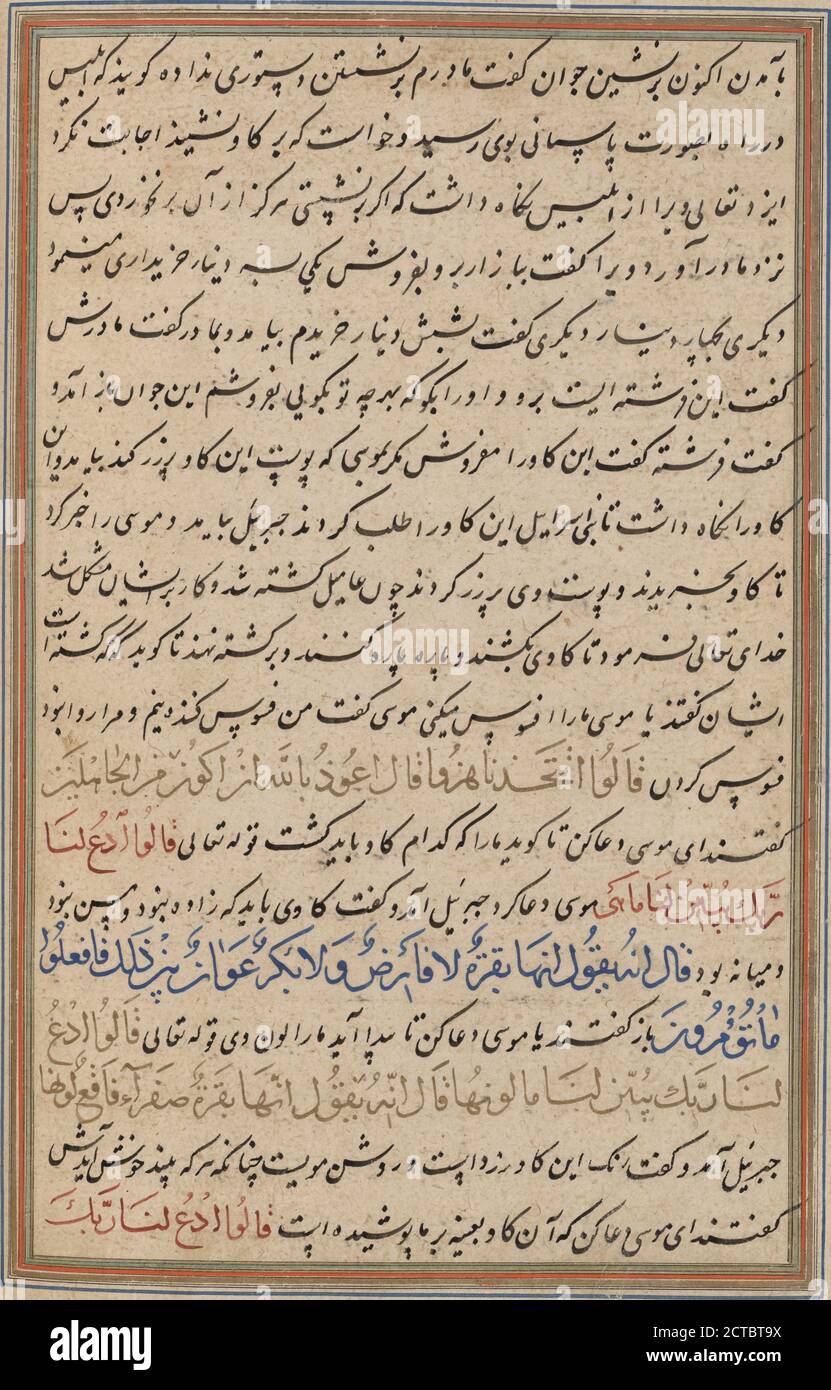 بآمدن اکنون برنشین جوان کفت مادرم برنشستن دستوری نداده کویند که ابلیس
در راه بصورت پاسبانی بوی رسید و خواست که بر کاو نشیند اجابت نکرد
ایزد تعالی ویرا از ابلیس نکاه داشت که اکر برنشستی هرکز از آن برنخوردی پس
نزد مادر آورد ویرا کفت ببازار بر و بفروش یکی بسه دینار خریداری مینمود
دیکری بچهار دینار دیکری کفت بشش دینار خریدم بیامد و بمادر کفت مادرش
کفت این فرشته است برو و اورا بکو که بهرچه تو بکویی بفروشم این جوان باز آمد و
کفت فرشته کفت این کاو را مفروش مکر بموسی که پوست این کاو پر زر کند بیامد و آن
کاو را نکاه داشت تا بنی اسرایل این کاو را طلب کردند جبرئیل بیامد و موسی را خبر کرد
تا کاو بخریدند و پوست وی پر زر کردند چون عامیل کشته شد و کار بر ایشان مشکل شد
خدای تعالی فرمود تا کاوی بکشند و پاره پاره کنند و بر کشته نهند تا کوید که کشته است
ایشان کفتند یا موسی مارا افسوس میکنی موسی کفت من فسوس کننده نیم و مرا روا نبود
فسوس کردن قالوا اتتخذنا هزوا قال اعوذ بالله ان اکون من الجاهلین
کفتند ای موسی دعا کن تا کوید مارا که کدام کاو باید کشت قوله تعالی قالوا ادع لنا
ربك یبین لنا ما هی موسی دعا کرد جبرئیل آمد و کفت کاوی باید که زاده نبود و مسن نبود
و میانه بود قال انه یقول انها بقرة لا فارض ولا بکر عوان بین ذلك فافعلوا
ما تؤمرون باز کفتند یا موسی دعا کن تا پیدا آید مارا لون وی قوله تعالی قالوا ادع
لنا ربك یبین لنا ما لونها قال انه یقول انها بقرة صفرآء فاقع لونها
جبرئیل آمد و کفت رنک این کاو زرد است و روشن مویست چنانکه هر که بیند خوش آیدش
کفتند ای موسی دعا کن که آن کاو بعینه بر ما پوشیده است قالوا ادع لنا ربك
alamy
Image ID: 2CTBT9X
www.alamy.com